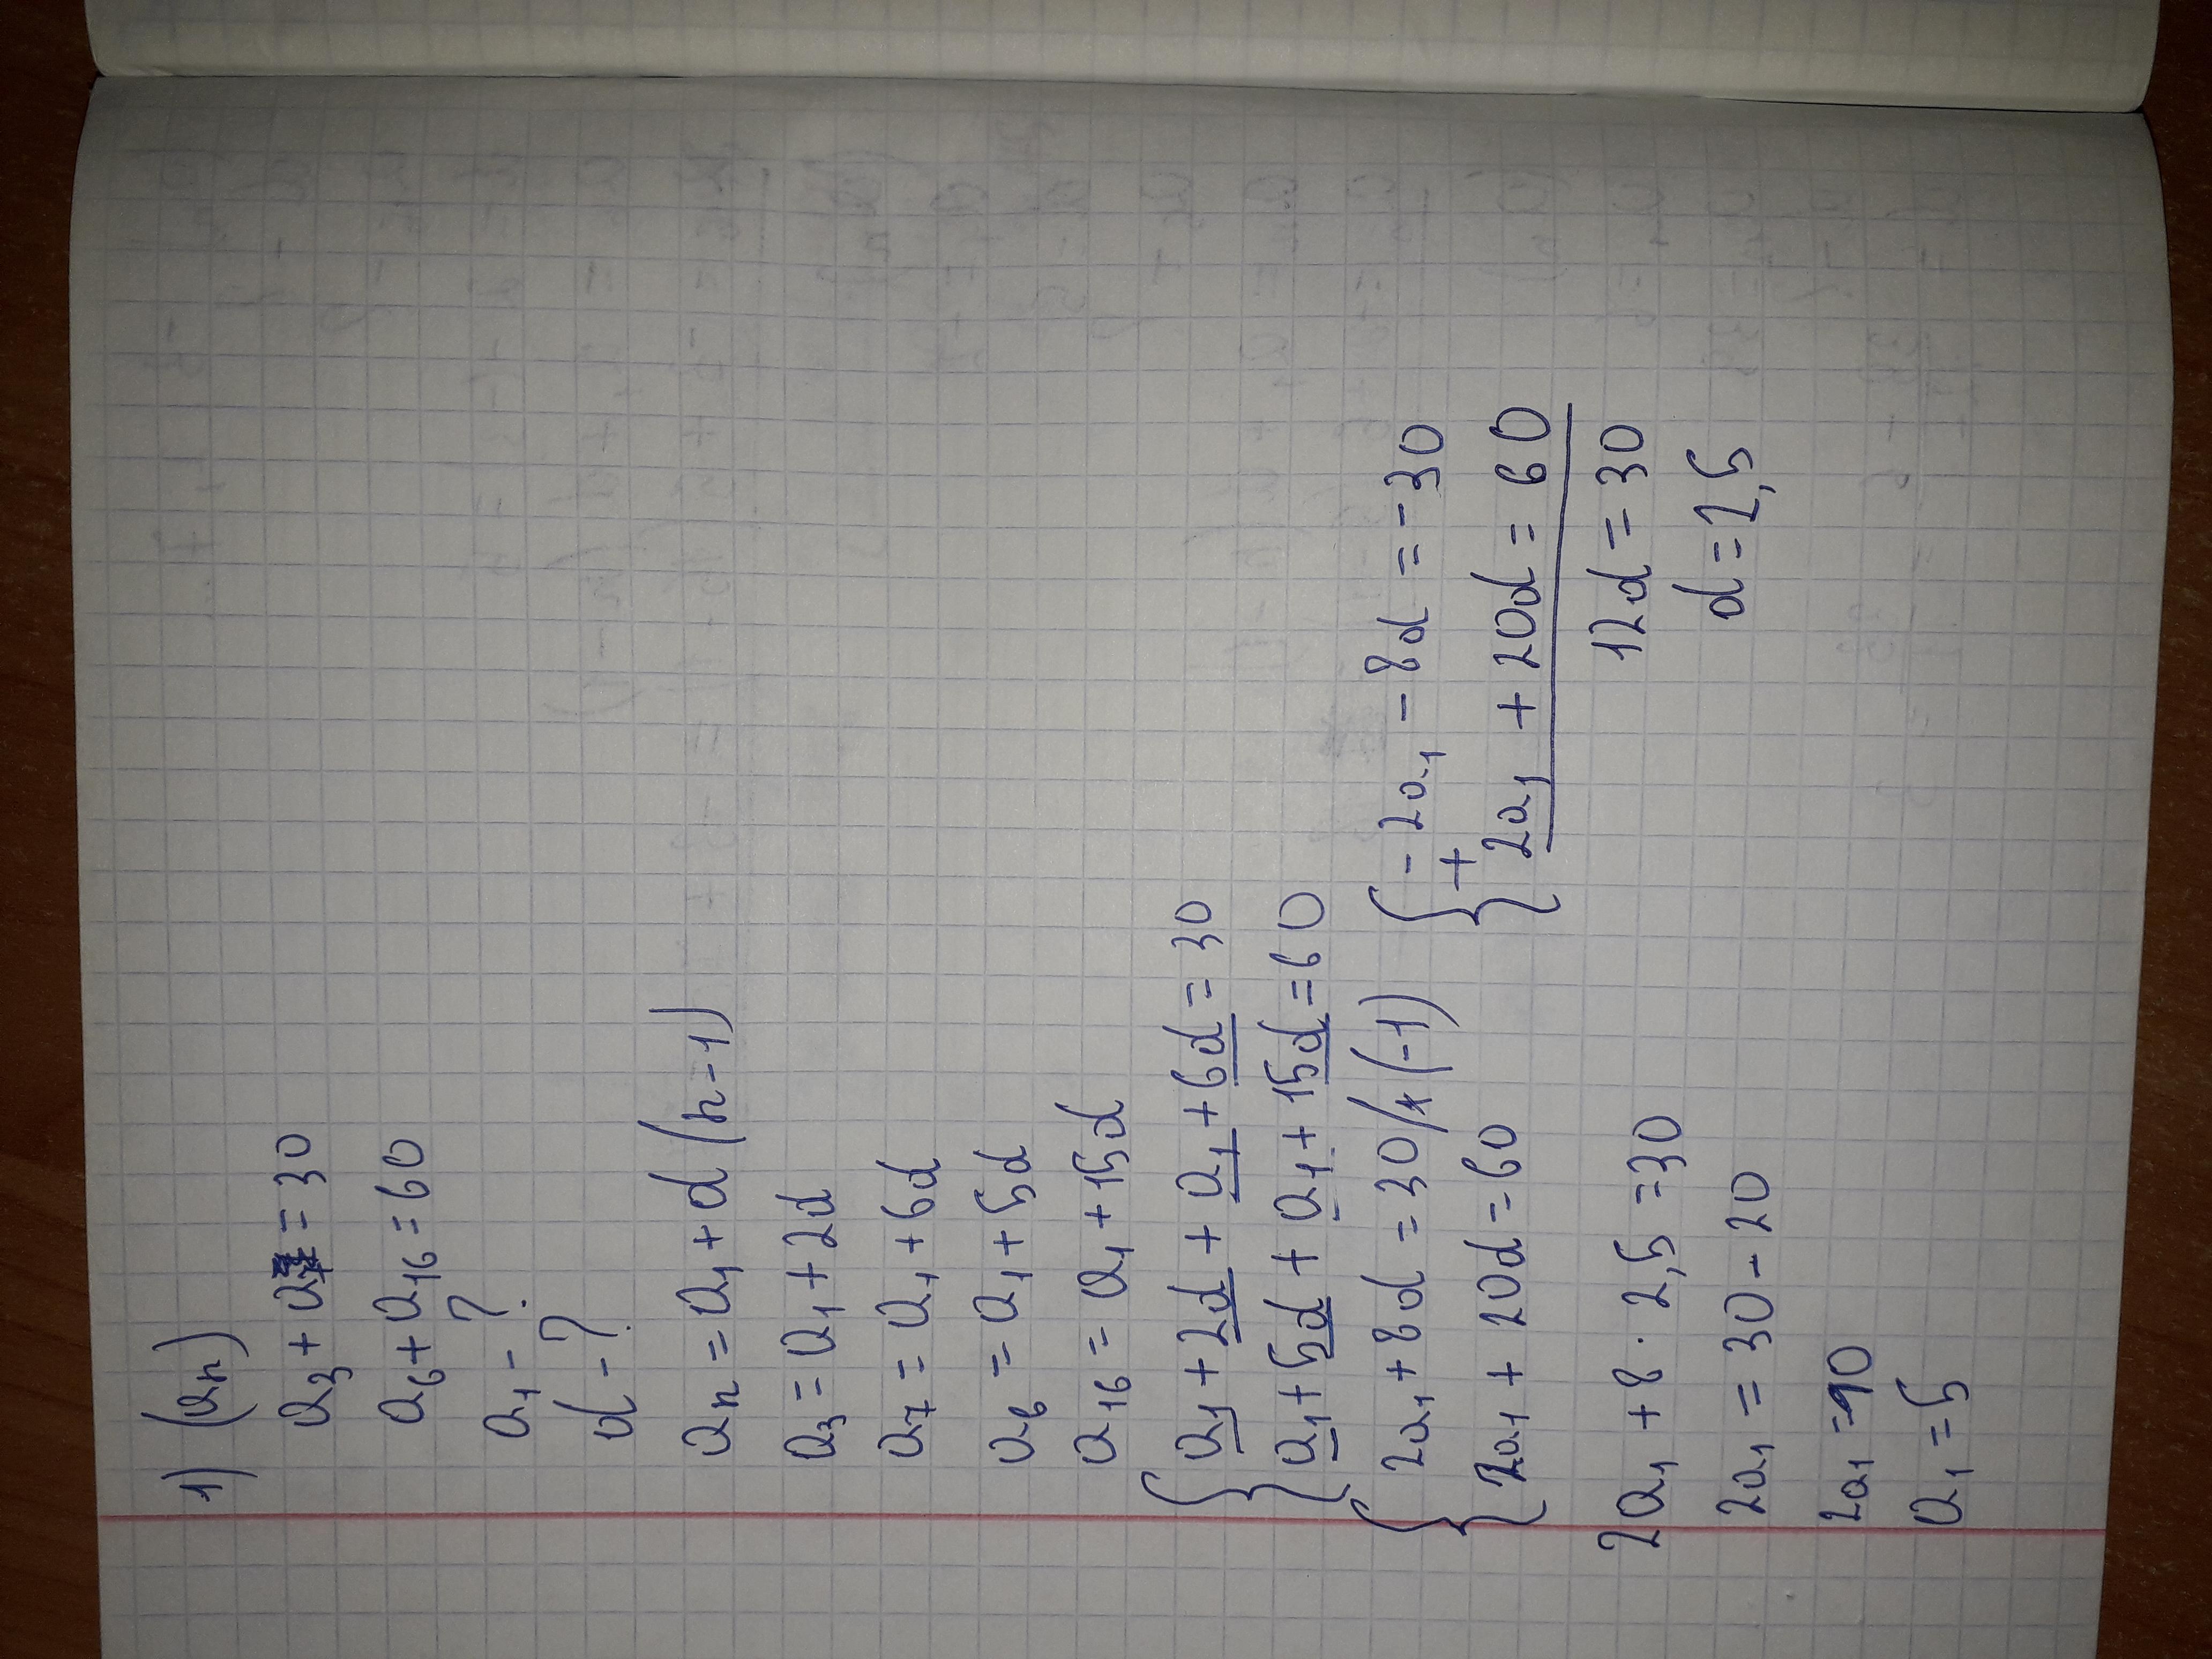 1) (aₙ)
a₃ + a₇ = 30
a₆ + a₁₆ = 60
a₁ - ?
d - ?
aₙ = a₁ + d (n-1)
a₃ = a₁ + 2d
a₇ = a₁ + 6d
a₆ = a₁ + 5d
a₁₆ = a₁ + 15d
{ a₁ + 2d + a₁ + 6d = 30
a₁ + 5d + a₁ + 15d = 60
{ 2a₁ + 8d = 30 /* (-1)
2a₁ + 20d = 60
{ - 2a₁ - 8d = -30
+
2a₁ + 20d = 60
12d = 30
d = 2,5
2a₁ + 8 · 2,5 = 30
2a₁ = 30 - 20
2a₁ = 10
a₁ = 5